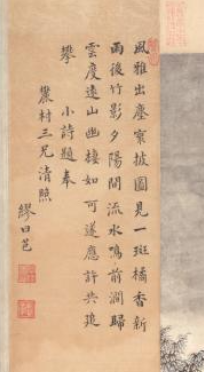 風雅出塵寰披圖見一斑橘香新
雨後竹影夕陽間流水鳴前澗歸
雲度遠山幽棲如可遂應許共追
攀　小詩題奉
農村三兄清照
繆曰芑